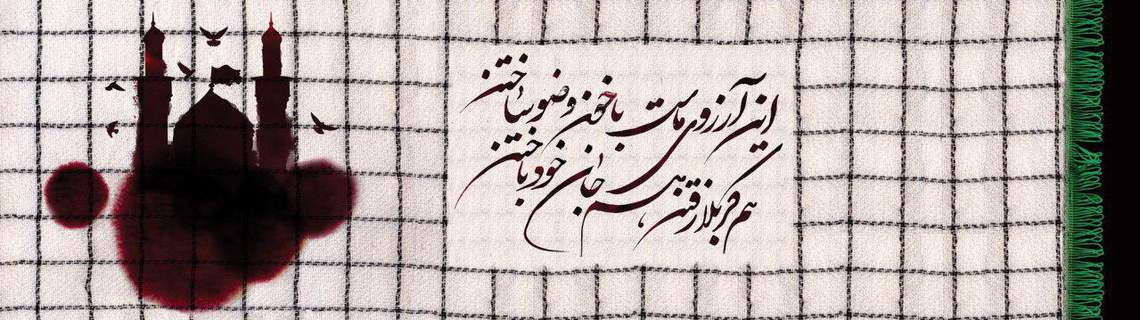 این آرزوی ماست با خون وضو ساختن
هم کربلا رفتن هم جان خود باختن